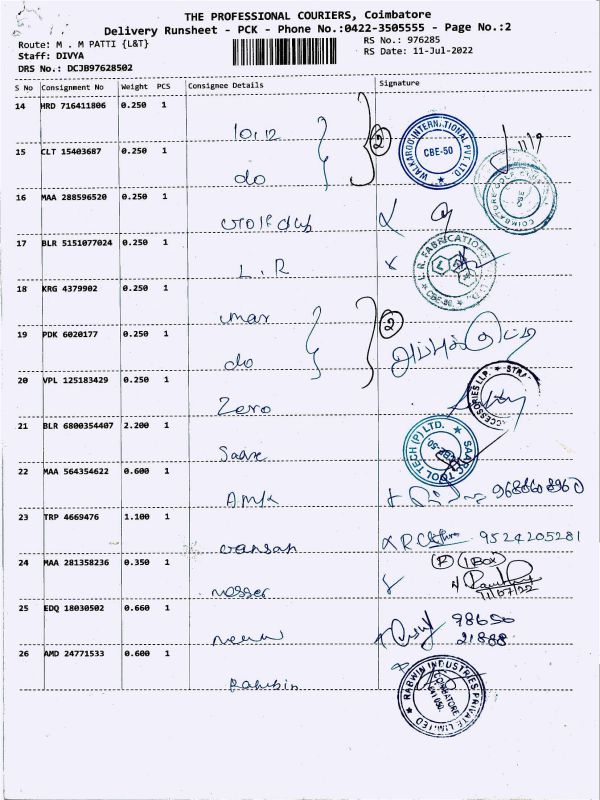 THE PROFESSIONAL COURIERS, Coimbatore
Delivery Runsheet - PCK - Phone No.:0422-3505555 - Page No.:2
Route: M . M PATTI {L&T}
RS No.: 976285
Staff: DIVYA
RS Date: 11-Jul-2022
DRS No.: DCJB97628502
S No Consignment No Weight PCS Consignee Details Signature
14 HRD 716411806 0.250 1
10,12
2
WALKAROO INTERNATIONAL PVT. LTD.
CBE-50
15 CLT 15403687 0.250 1
do
16 MAA 288596520 0.250 1
17 BLR 5151077024 0.250 1
L.R
L.R. FABRICATIONS
CBE-50.
18 KRG 4379902 0.250 1
umar
2
19 PDK 6020177 0.250 1
do
20 VPL 125183429 0.250 1
Zero
21 BLR 6800354407 2.200 1
SAARC TOOL TECH (P) LTD.
CBE-50
22 MAA 564354622 0.600 1
23 TRP 4669476 1.100 1
vansan
9524205281
24 MAA 281358236 0.350 1
nesser
R 1 Box
11/07/22
25 EDQ 18030502 0.660 1
98650
21888
26 AMD 24771533 0.600 1
RABWIN INDUSTRIES PRIVATE LIMITED
COIMBATORE
641 050.